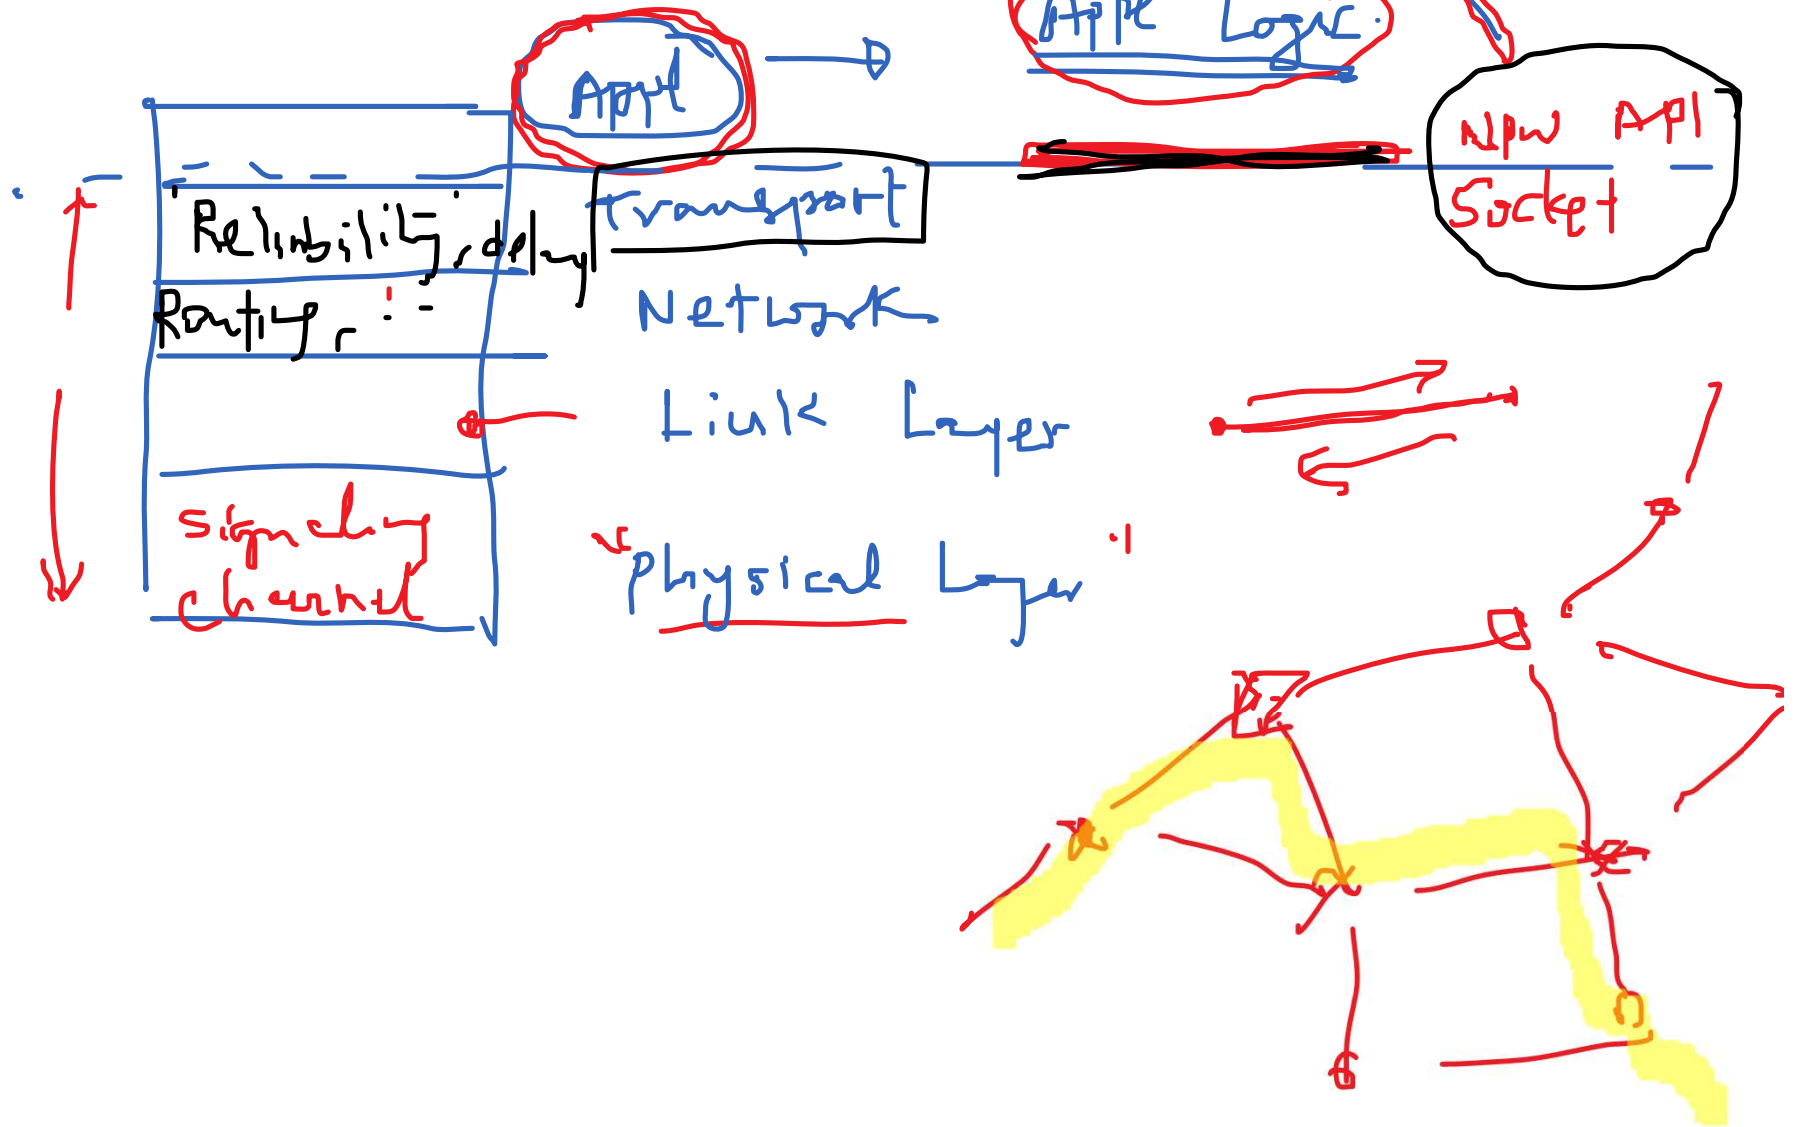 Appl
Appl Logic.
New API
Socket
Transport
Reliability, delay
Routing,
Network
Link Layer
Signaling
channel
"Physical Layer"